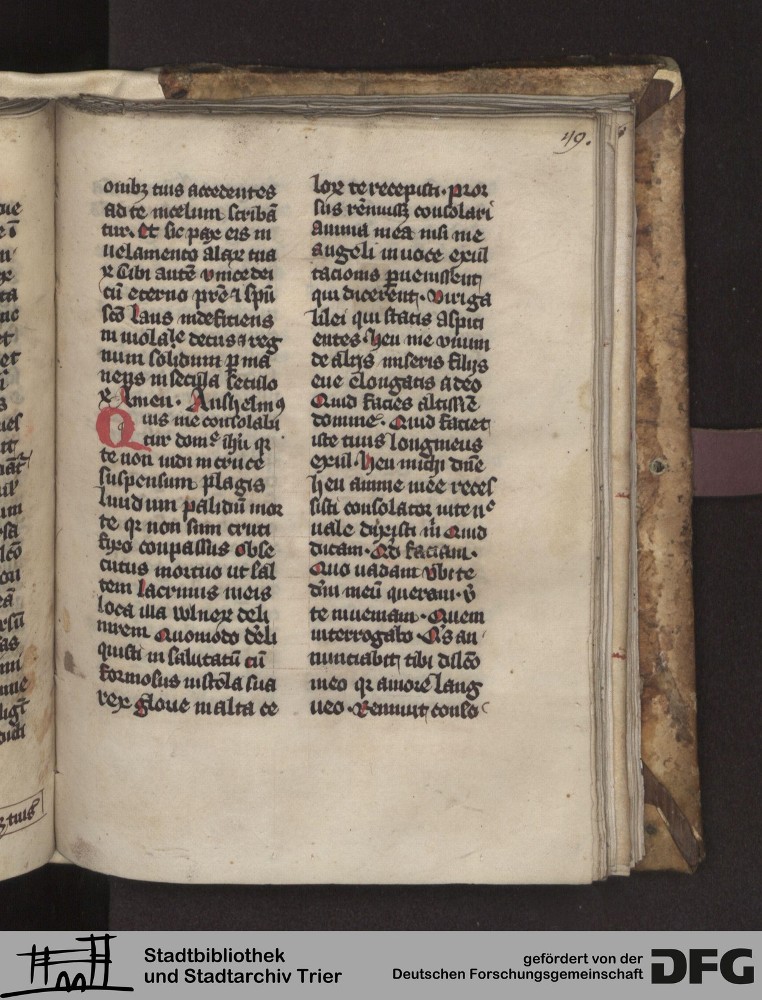 49.
oīnibꝫ tuis accedentes
ad te in celum scribā
tur. Et sic pax eis in
uelamento alaꝝ tua
ꝝ tibi autē vnice dei
cū eterno prē ⁊ spū
scō laus indeficiens
in uiolale decus ⁊ reg
num solidum ꝑ ma
nens in secula seculo
ꝝ Amen. Anshelmꝰ
Quis me consolabi
tur domᵉ ihū qꝛ
te non uidi in cruce
suspensum plagis
liuidum palidū mor
te qꝛ non sum cruci
fixo conpassus obse
cutus mortuo ut sal
tem lacrimis meis
loca illa wlneꝝ deli
nirem Quomodo deli
quisti in salutatū cū
formosus in stola sua
rex glorie in alta ce
loꝝ te recepisti. pror
sus rēnuissꝫ consolari
anima mea nisi me
angeli in uoce exul
tacionis p̄uenissent
qui dicerent. Viri ga
lilei qui statis aspici
entes. heu me virum
de altis miseris filiis
eue elongatis a deo
Quid facies altissīe
domine. Quid faciet
iste tuus longineus
exul. heu michi dn̄e
heu anime mēe reces
sisti consolator vite nᵉ
uale dixisti m̄ Quid
dicam. Qd faciam.
Quo uadam vbi te
dn̄m meū queram. v̄
te inueniam. Quem
interrogabo. Q's an
nunciabit tibi dilcō
meo qꝛ amore lang
ueo. Rennuit conso
ꝫ tuis
Stadtbibliothek
und Stadtarchiv Trier
gefördert von der
Deutschen Forschungsgemeinschaft
DFG